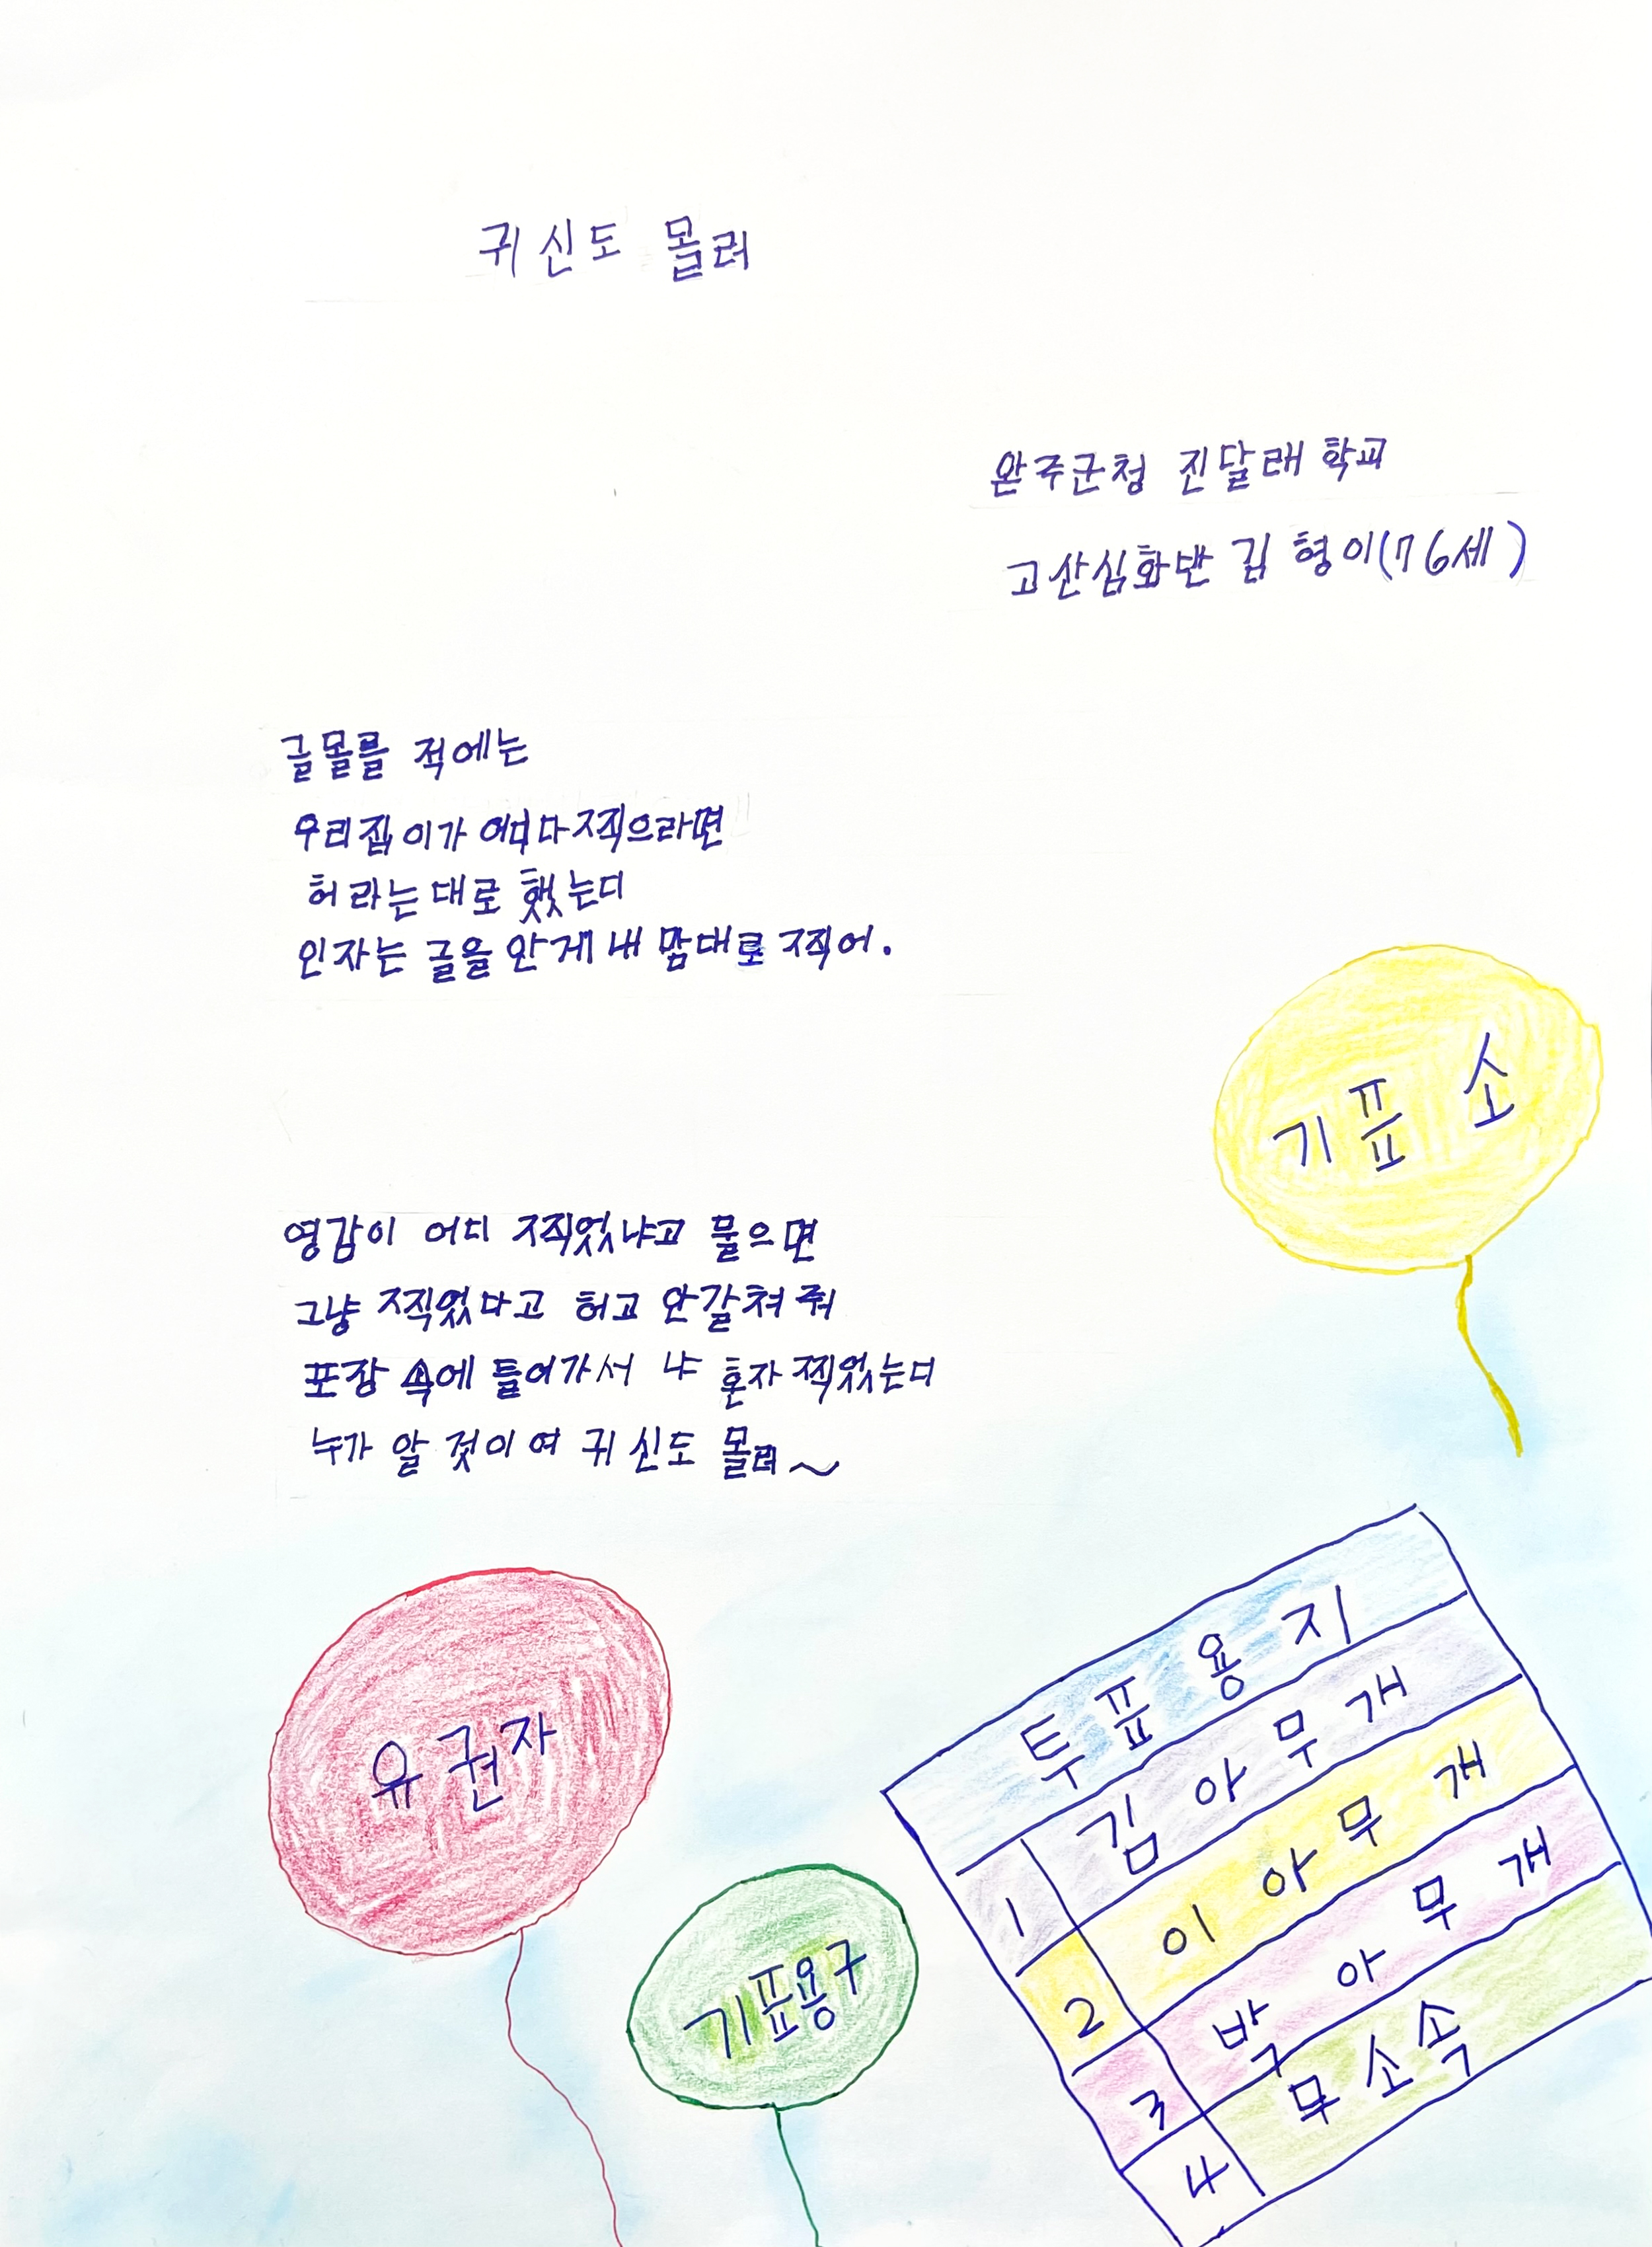 귀신도 몰러
완주군청 진달래 학교
고산심화반 김형이(76세)
글몰를 적에는
우리집이가 어따다 찍으라면
허라는대로 했는디
인자는 글을 안게 내 맘대로 찍어.
영감이 어디 찍었냐고 물으면
그냥 찍었다고 허고 안갈쳐줘
포장 속에 들어가서 나 혼자 찍었는디
누가 알 것이여 귀신도 몰러~
기표소
유권자
기표용구
투표용지
1 김아무개
2 이아무개
3 박아무개
4 무소속